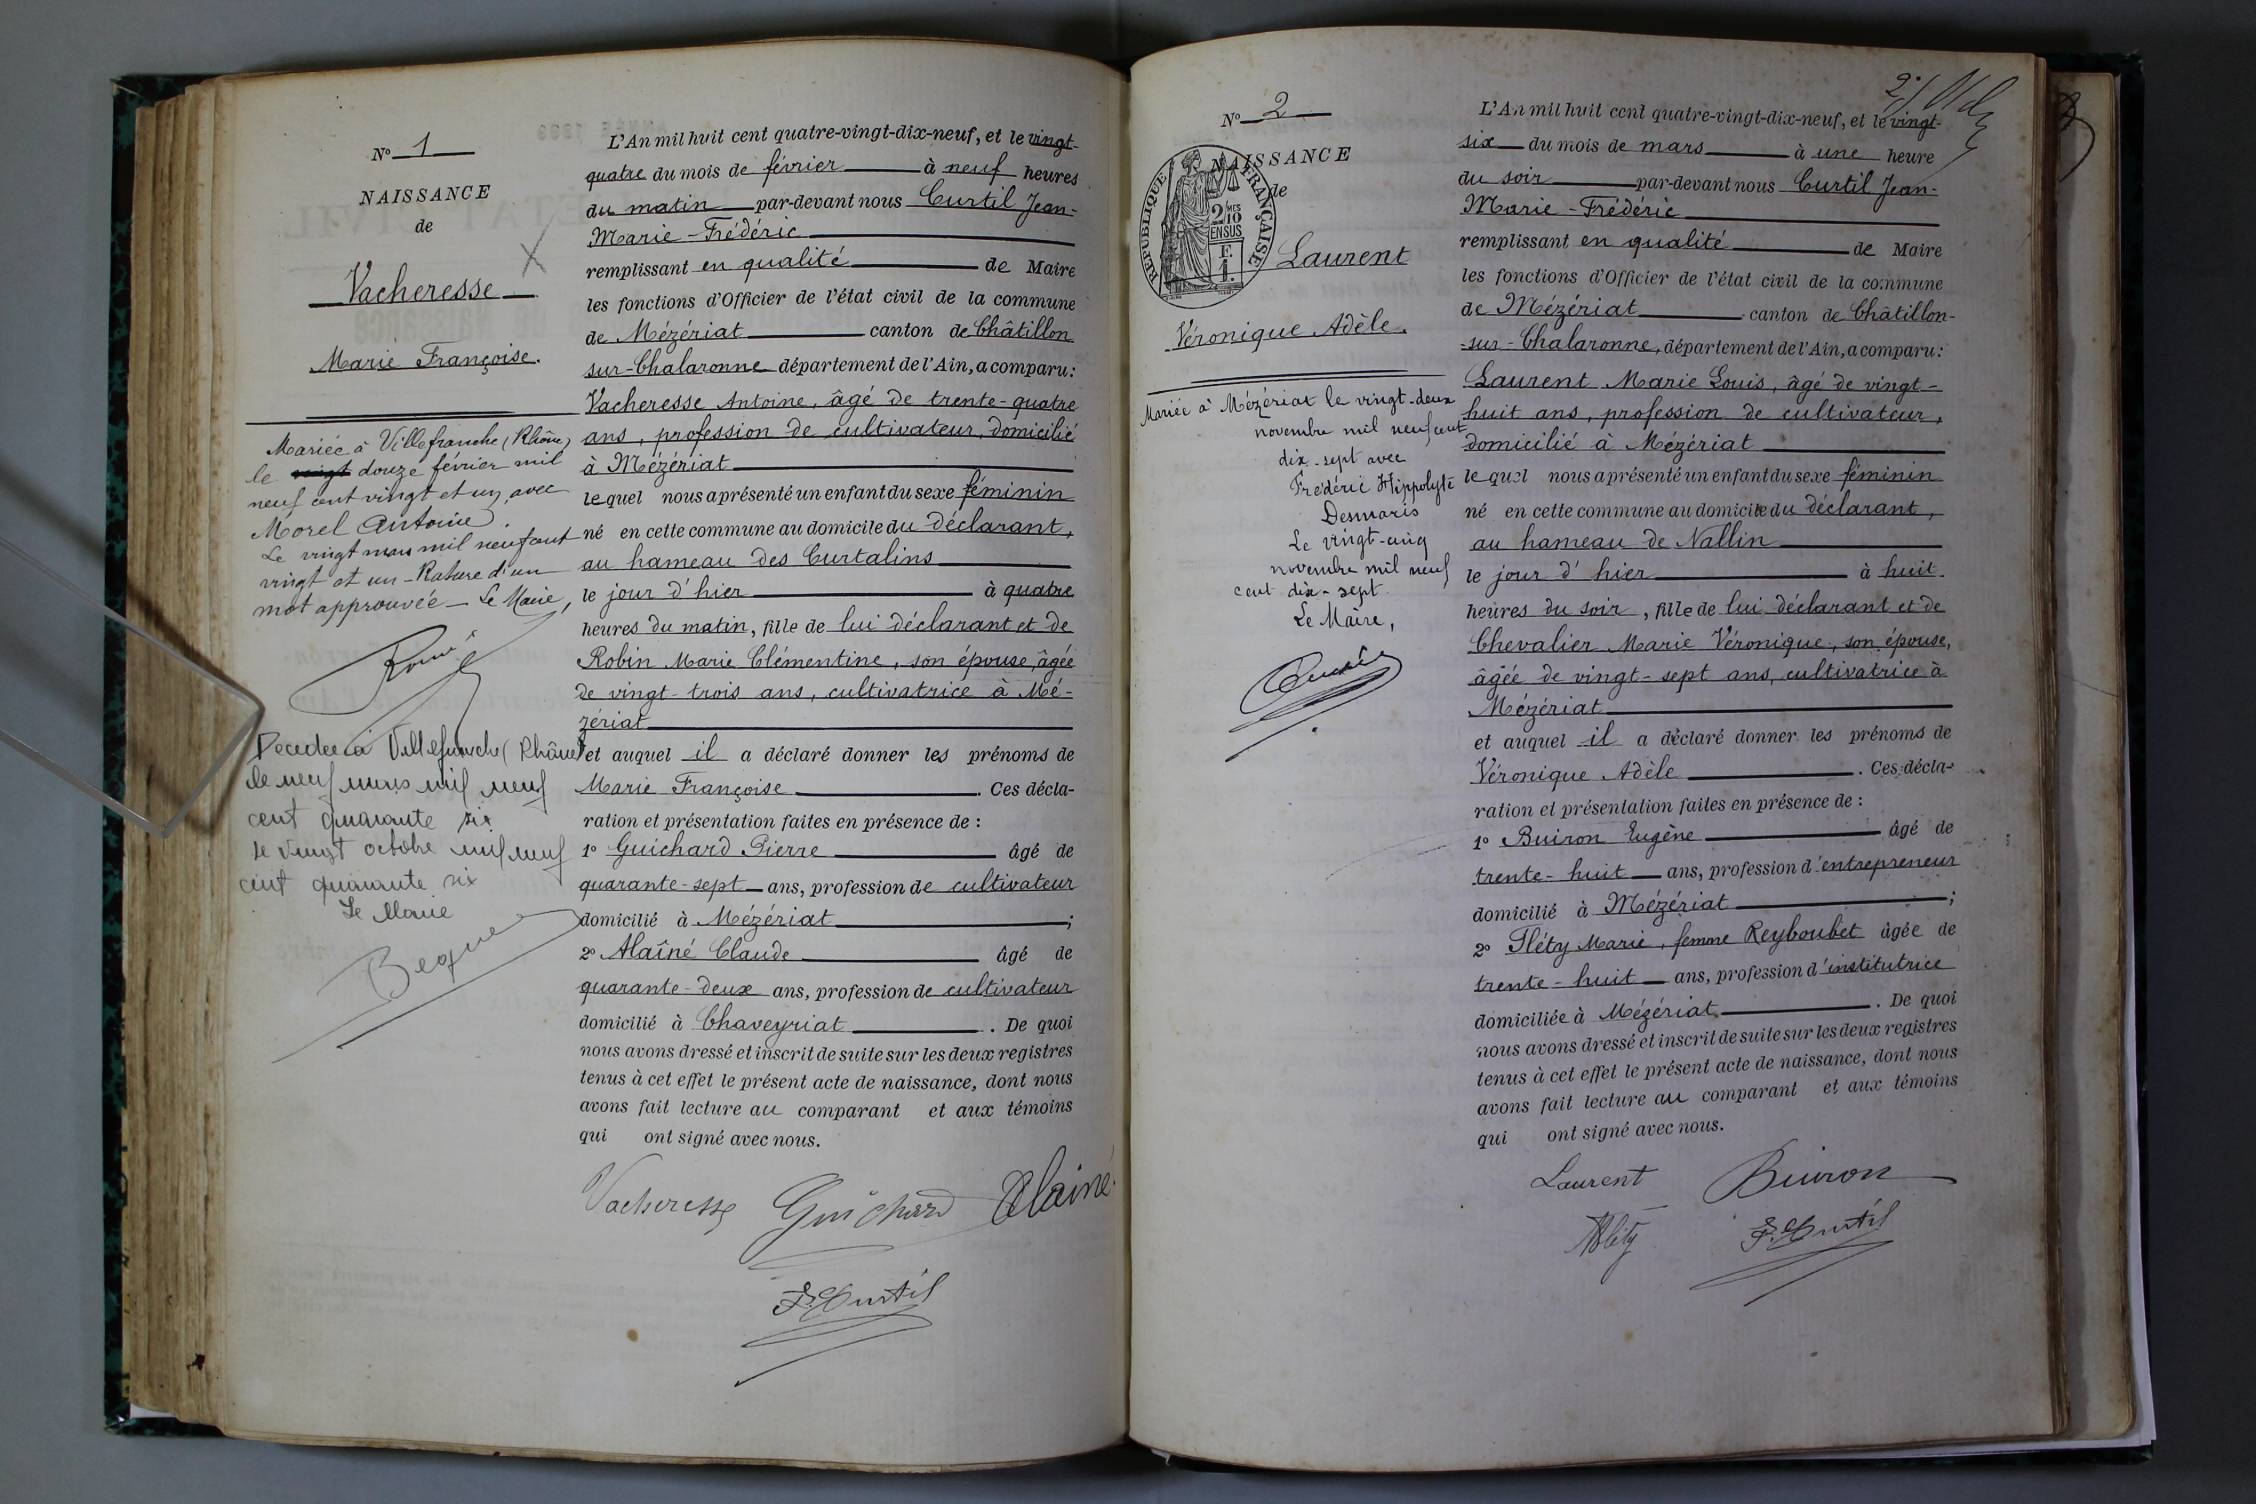 Nº 1
NAISSANCE
de
Vacheresse
Marie Françoise.
Mariée à Villefranche (Rhône)
le vingt douze février mil
neuf cent vingt et un, avec
Morel Antoine.
Le vingt mars mil neuf cent
vingt et un - Rature d'un
mot approuvée - Le Maire,
Décédée à Villefranche (Rhône)
le neuf mars mil neuf
cent quarante six
le vingt octobre mil neuf
cent quarante six
Le Maire
L'An mil huit cent quatre-vingt-dix-neuf, et le vingt-
quatre du mois de février à neuf heures
du matin par-devant nous Curtil Jean-
Marie-Frédéric
remplissant en qualité de Maire
les fonctions d'Officier de l'état civil de la commune
de Mézériat canton de Châtillon
sur-Chalaronne département de l'Ain, a comparu :
Vacheresse Antoine, âgé de trente-quatre
ans, profession de cultivateur, domicilié
à Mézériat
lequel nous a présenté un enfant du sexe féminin
né en cette commune au domicile du déclarant,
au hameau des Curtalins
le jour d'hier à quatre
heures du matin, fille de lui déclarant et de
Robin Marie Clémentine, son épouse, âgée
de vingt-trois ans, cultivatrice à Mé-
zériat
et auquel il a déclaré donner les prénoms de
Marie Françoise. Ces décla-
ration et présentation faites en présence de :
1º Guichard Pierre âgé de
quarante-sept ans, profession de cultivateur
domicilié à Mézériat ;
2º Alaîné Claude âgé de
quarante-deux ans, profession de cultivateur
domicilié à Chaveyriat. De quoi
nous avons dressé et inscrit de suite sur les deux registres
tenus à cet effet le présent acte de naissance, dont nous
avons fait lecture au comparant et aux témoins
qui ont signé avec nous.
Vacheresse Guichard Alainé
F. Curtil
Nº 2
NAISSANCE
de
RÉPUBLIQUE FRANÇAISE
2/10 MES
EN SUS
F.
1.
Laurent
Véronique Adèle.
Mariée à Mézériat le vingt-deux
novembre mil neuf cent
dix-sept avec
Frédéric Hippolyte
Desmaris
Le vingt-cinq
novembre mil neuf
cent dix-sept.
Le Maire,
L'An mil huit cent quatre-vingt-dix-neuf, et le vingt-
six du mois de mars à une heure
du soir par-devant nous Curtil Jean-
Marie-Frédéric
remplissant en qualité de Maire
les fonctions d'Officier de l'état civil de la commune
de Mézériat canton de Châtillon-
-sur-Chalaronne, département de l'Ain, a comparu :
Laurent Marie Louis, âgé de vingt-
huit ans, profession de cultivateur,
domicilié à Mézériat
lequel nous a présenté un enfant du sexe féminin
né en cette commune au domicile du déclarant,
au hameau de Nallin
le jour d'hier à huit
heures du soir, fille de lui déclarant et de
Chevalier Marie Véronique, son épouse,
âgée de vingt-sept ans, cultivatrice à
Mézériat
et auquel il a déclaré donner les prénoms de
Véronique Adèle. Ces décla-
ration et présentation faites en présence de :
1º Buiron Eugène âgé de
trente-huit ans, profession d'entrepreneur
domicilié à Mézériat ;
2º Fléty Marie, femme Reyboubet âgée de
trente-huit ans, profession d'institutrice
domiciliée à Mézériat. De quoi
nous avons dressé et inscrit de suite sur les deux registres
tenus à cet effet le présent acte de naissance, dont nous
avons fait lecture au comparant et aux témoins
qui ont signé avec nous.
Laurent Buiron
F. Curtil